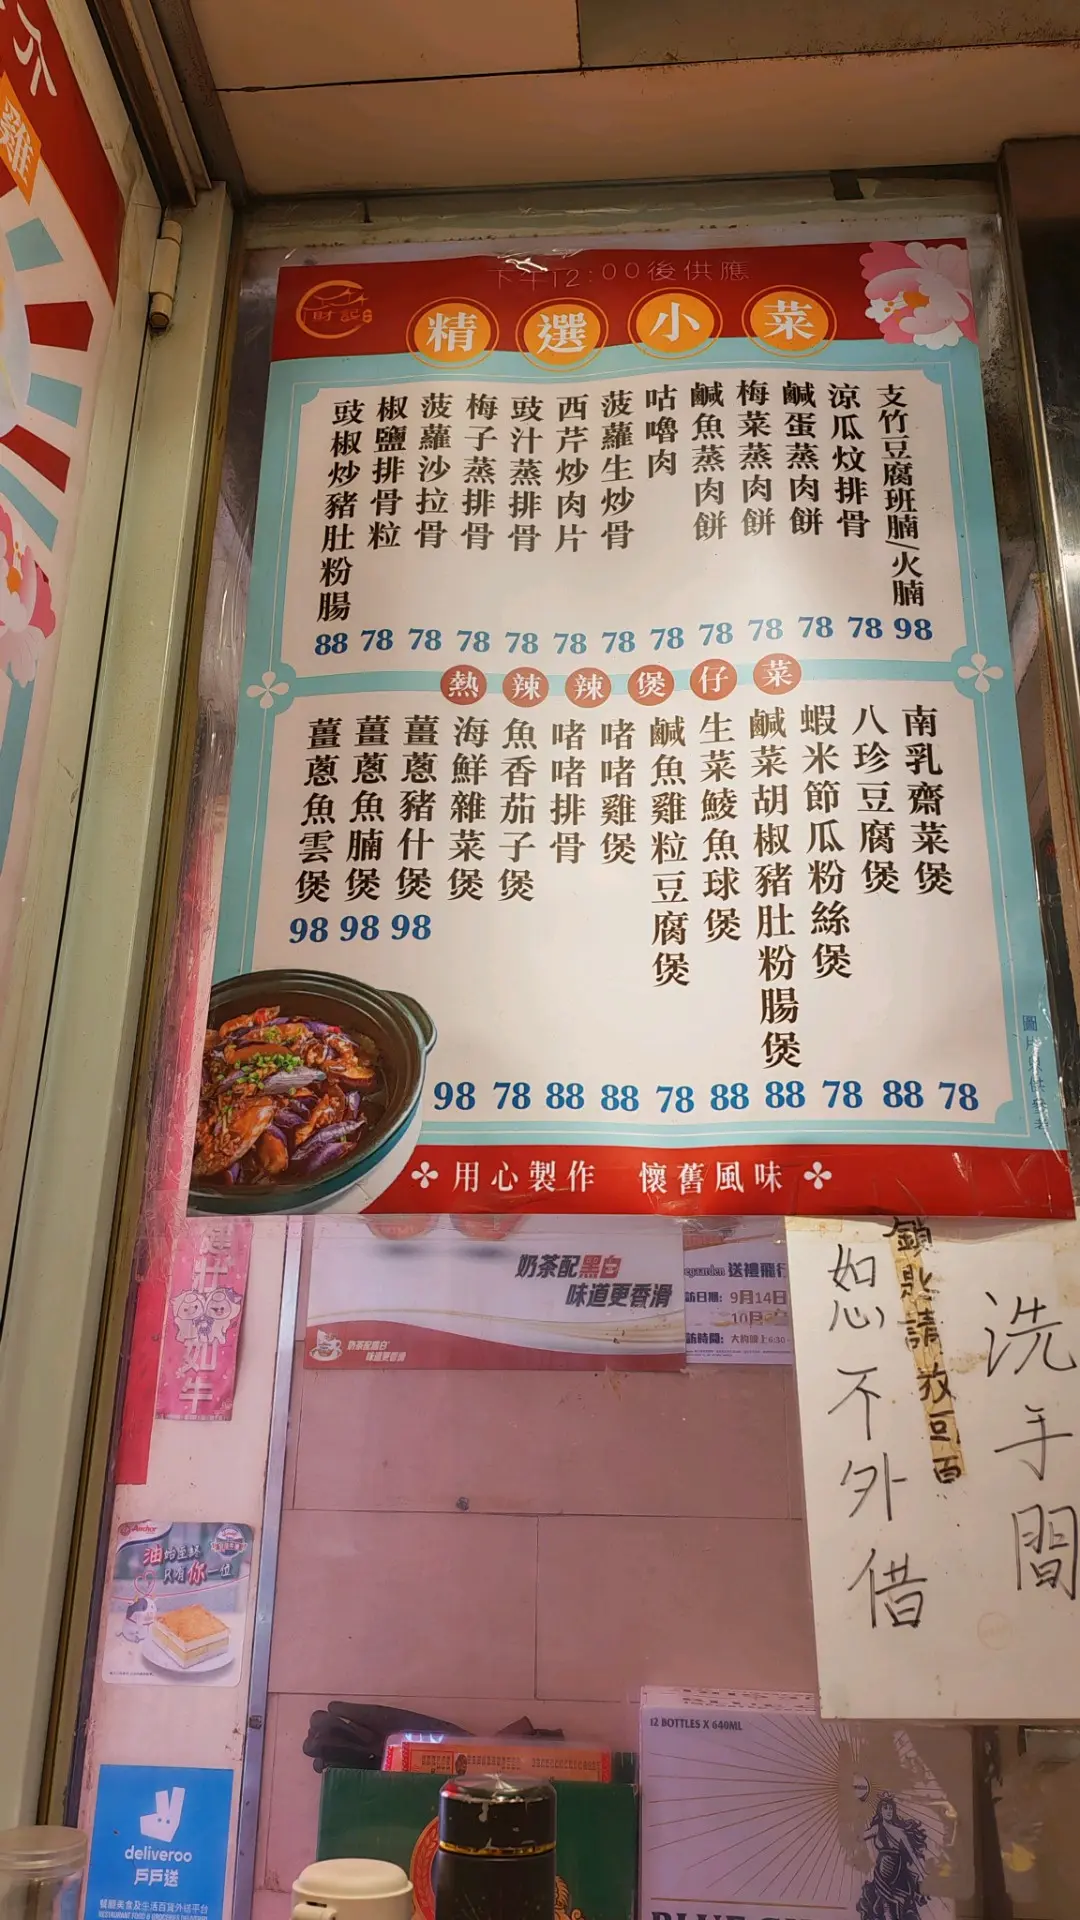 下午12:00後供應
財記
精選小菜
支竹豆腐班腩/火腩
涼瓜炆排骨
鹹蛋蒸肉餅
梅菜蒸肉餅
鹹魚蒸肉餅
咕嚕肉
菠蘿生炒骨
西芹炒肉片
豉汁蒸排骨
梅子蒸排骨
菠蘿沙拉骨
椒鹽排骨粒
豉椒炒豬肚粉腸
88 78 78 78 78 78 78 78 78 78 78 78 98
熱辣辣煲仔菜
南乳齋菜煲
八珍豆腐煲
蝦米節瓜粉絲煲
鹹菜胡椒豬肚粉腸煲
生菜鯪魚球煲
鹹魚雞粒豆腐煲
啫啫雞煲
啫啫排骨
魚香茄子煲
海鮮雜菜煲
薑蔥豬什煲
薑蔥魚腩煲
薑蔥魚雲煲
98 98 98
98 78 88 88 78 88 88 78 88 78
圖片只供參考
用心製作 懷舊風味
雞
奶茶配黑白
味道更香滑
奶茶配黑白
味道更香滑
egaarden 送禮飛行
訪日期: 9月14日
10月
訪時間:
洗手間
鎖匙請放回原
如心不外借
壯如牛
Anchor
油始至終
只有你一位
deliveroo
戶戶送
餐廳美食及生活百貨外送平台
12 BOTTLES X 640ML